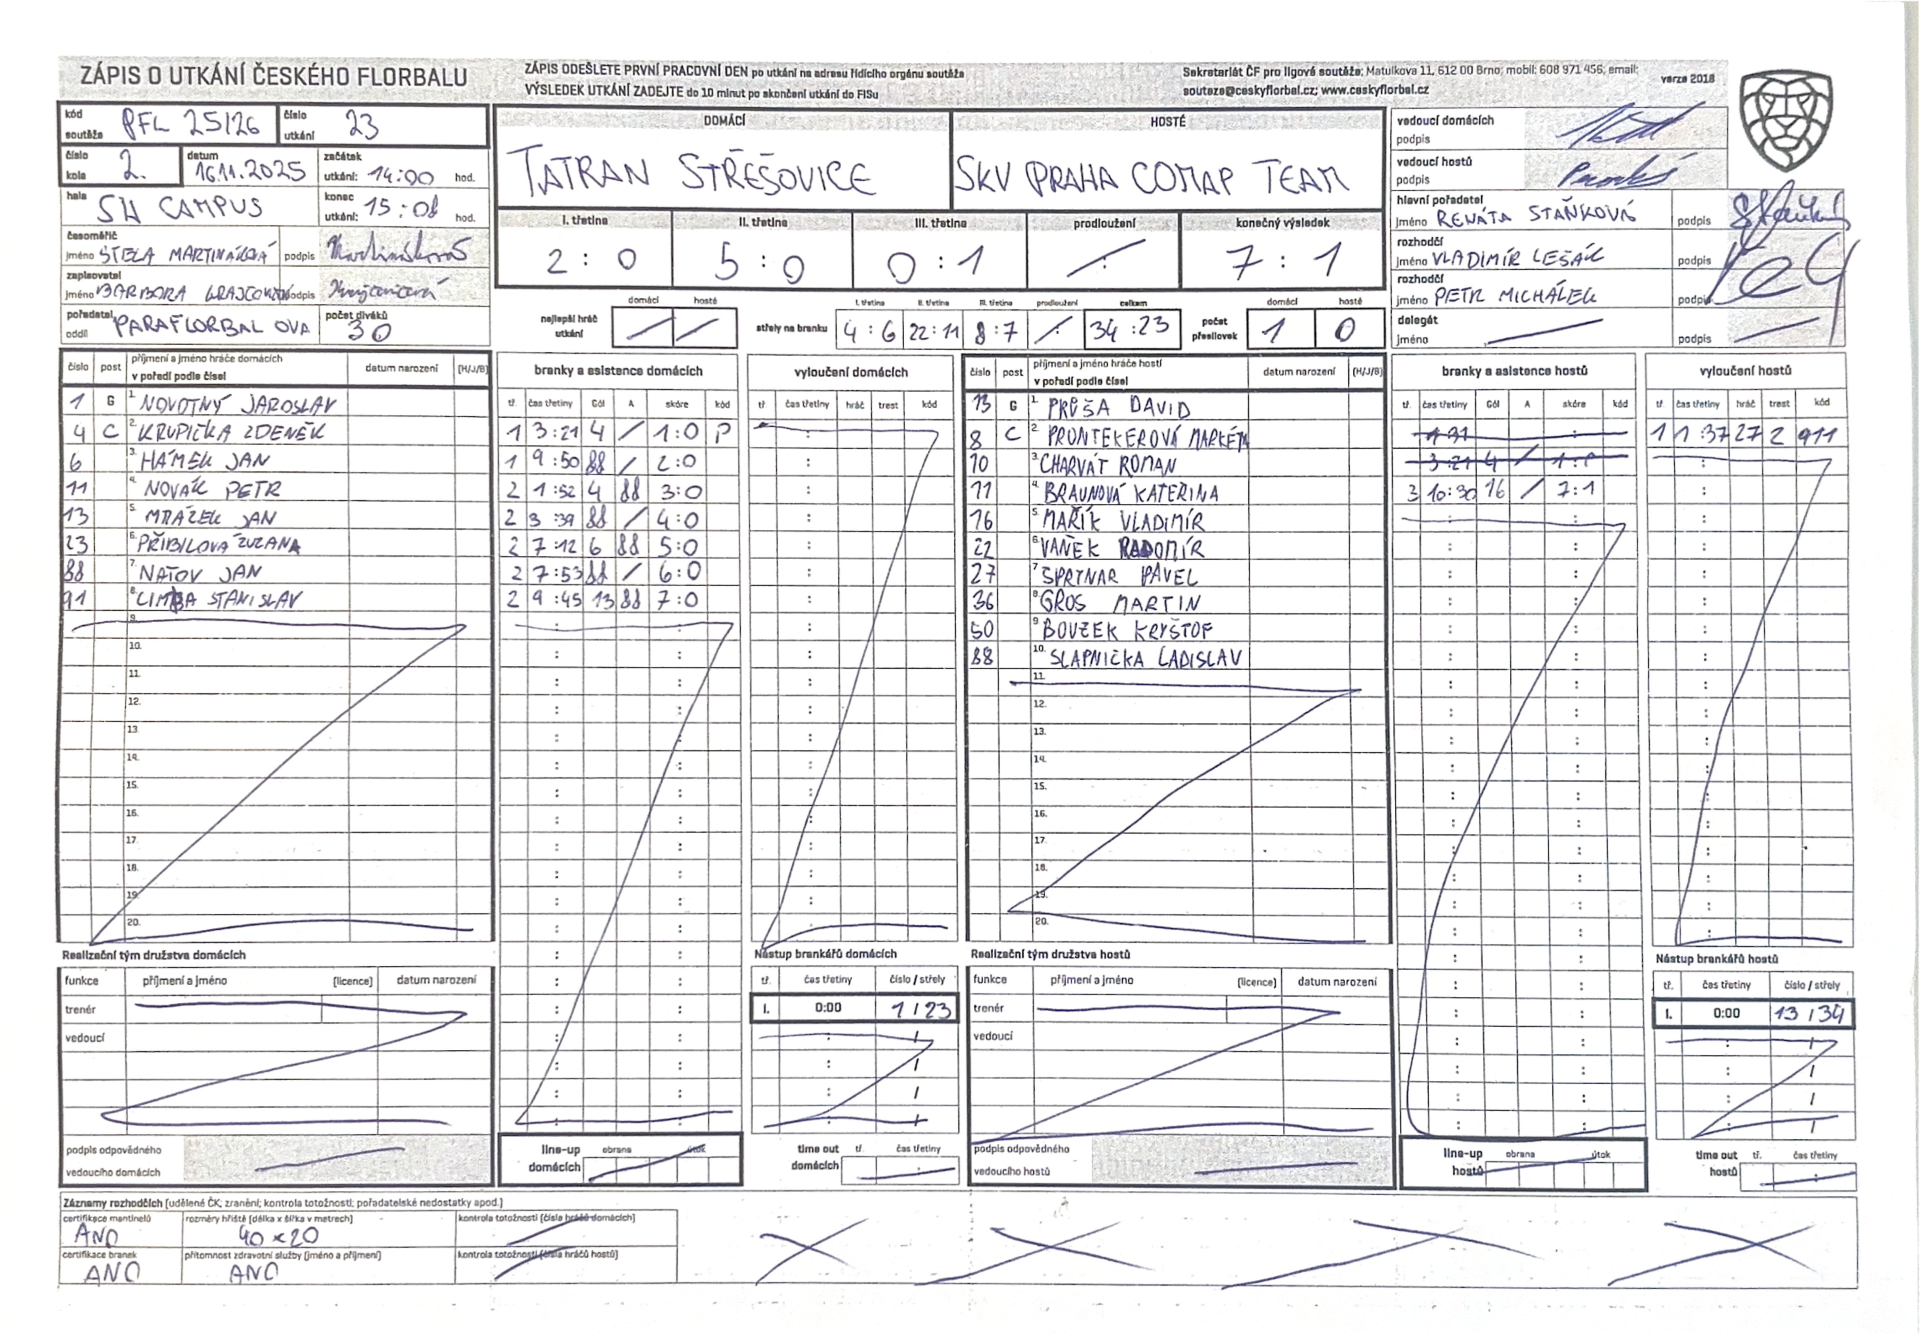 ZÁPIS O UTKÁNÍ ČESKÉHO FLORBALU
ZÁPIS ODEŠLETE PRVNÍ PRACOVNÍ DEN po utkání na adresu řídícího orgánu soutěže
VÝSLEDEK UTKÁNÍ ZADEJTE do 10 minut po skončení utkání do FISu
Sekretariát ČF pro ligové soutěže; Matulkova 11, 612 00 Brno; mobil: 608 971 456; email:
soutaze@ceskyflorbal.cz; www.ceskyflorbal.cz
verze 2018
kód soutěže PFL 25/26 číslo utkání 23
číslo kola 2. datum 16.11.2025 začátek utkání: 14:00 hod.
hala SH CAMPUS konec utkání: 15:08 hod.
časoměřič
jméno STELA MARTINÁKOVÁ podpis
zapisovatel
jméno BARBORA podpis
pořadatel oddíl PARAFLORBAL OVA počet diváků 30
DOMÁCÍ HOSTÉ
TATRAN STŘEŠOVICE SKV PRAHA COMAP TEAM
I. třetina II. třetina III. třetina prodloužení konečný výsledek
2 : 0 5 : 0 0 : 1 : 7 : 1
domácí hosté I. třetina II. třetina III. třetina prodloužení celkem domácí hosté
nejlepší hráč utkání / / střely na branku 4 : 6 22 : 11 8 : 7 : 34 : 23 počet přesilovek 1 0
vedoucí domácích podpis
vedoucí hostů podpis
hlavní pořadatel
jméno RENÁTA STAŇKOVÁ podpis
rozhodčí
jméno VLADIMÍR LEŠÁK podpis
rozhodčí
jméno PETR MICHÁLEK podpis
delegát
jméno podpis
číslo post příjmení a jméno hráče domácích v pořadí podle čísel datum narození (H/J/B)
1 G 1. NOVOTNÝ JAROSLAV
4 C 2. KRUPIČKA ZDENĚK
6 3. HAMEK JAN
11 4. NOVÁK PETR
13 5. MRÁZEK JAN
23 6. PŘIBILOVÁ ZUZANA
88 7. NAŤOV JAN
91 8. LIMBA STANISLAV
9.
10.
11.
12.
13.
14.
15.
16.
17.
18.
19.
20.
branky a asistence domácích
tř. čas třetiny Gól A skóre kód
1 3:21 4 / 1:0 P
1 9:50 88 / 2:0
2 1:52 4 88 3:0
2 3:39 88 / 4:0
2 7:12 6 88 5:0
2 7:53 88 / 6:0
2 9:45 13 88 7:0
vyloučení domácích
tř. čas třetiny hráč trest kód
číslo post příjmení a jméno hráče hostí v pořadí podle čísel datum narození (H/J/B)
13 G 1. PRŮŠA DAVID
8 C 2. PRONTEKEROVÁ MARKÉTA
10 3. CHARVÁT ROMAN
11 4. BRAUNOVÁ KATEŘINA
16 5. MAŘÍK VLADIMÍR
22 6. VANĚK RADOMÍR
27 7. SPRTNAR PAVEL
36 8. GROS MARTIN
50 9. BOUZEK KRYŠTOF
88 10. SLAPNIČKA LADISLAV
11.
12.
13.
14.
15.
16.
17.
18.
19.
20.
branky a asistence hostů
tř. čas třetiny Gól A skóre kód
1 31
3:21 4 / 1:0
3 10:30 16 / 7:1
vyloučení hostů
tř. čas třetiny hráč trest kód
1 1:37 27 2 911
Realizační tým družstva domácích
funkce příjmení a jméno (licence) datum narození
trenér
vedoucí
podpis odpovědného vedoucího domácích
line-up domácích obrana útok
Nástup brankářů domácích
tř. čas třetiny číslo / střely
I. 0:00 1 / 23
time out domácích tř. čas třetiny
Realizační tým družstva hostů
funkce příjmení a jméno (licence) datum narození
trenér
vedoucí
podpis odpovědného vedoucího hostů
line-up hostů obrana útok
Nástup brankářů hostů
tř. čas třetiny číslo / střely
I. 0:00 13 / 34
time out hostů tř. čas třetiny
Záznamy rozhodčích (udělené ČK; zranění; kontrola totožnosti; pořadatelské nedostatky apod.)
certifikace mantinelů ANO rozměry hřiště (délka x šířka v metrech) 40 x 20 kontrola totožnosti (čísla hráčů domácích)
certifikace branek ANO přítomnost zdravotní služby (jméno a příjmení) ANO kontrola totožnosti (čísla hráčů hostů)